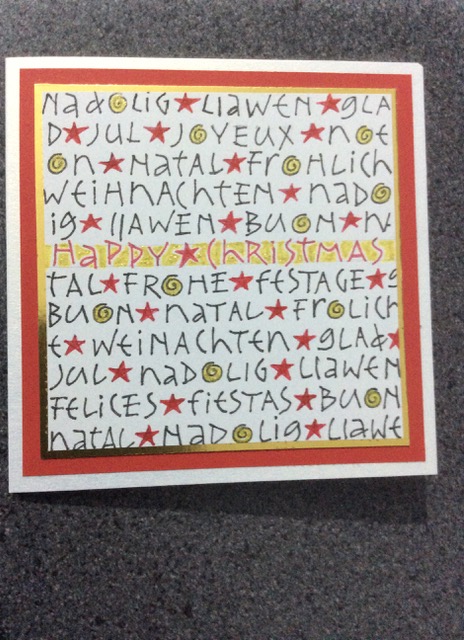 NadoLiG★LlaWEN★gLA
D★JUL★JOYEUX★NOE
ON★NATAL★FrOHLicH
WEiHNACHTEN★NADO
ig★LlAWEN★BUON★N
HaPPY★CHRiSTMAS
TAL★FROHE★fESTAGE★g
BUON★NATAL★FrOLicH
E★WEiNACHTEN★gLAd★
JUL★NaDOLIG★LlaWEN
FELICES★fiESTAS★BUON
NatAL★NaDOLig★LlaWE